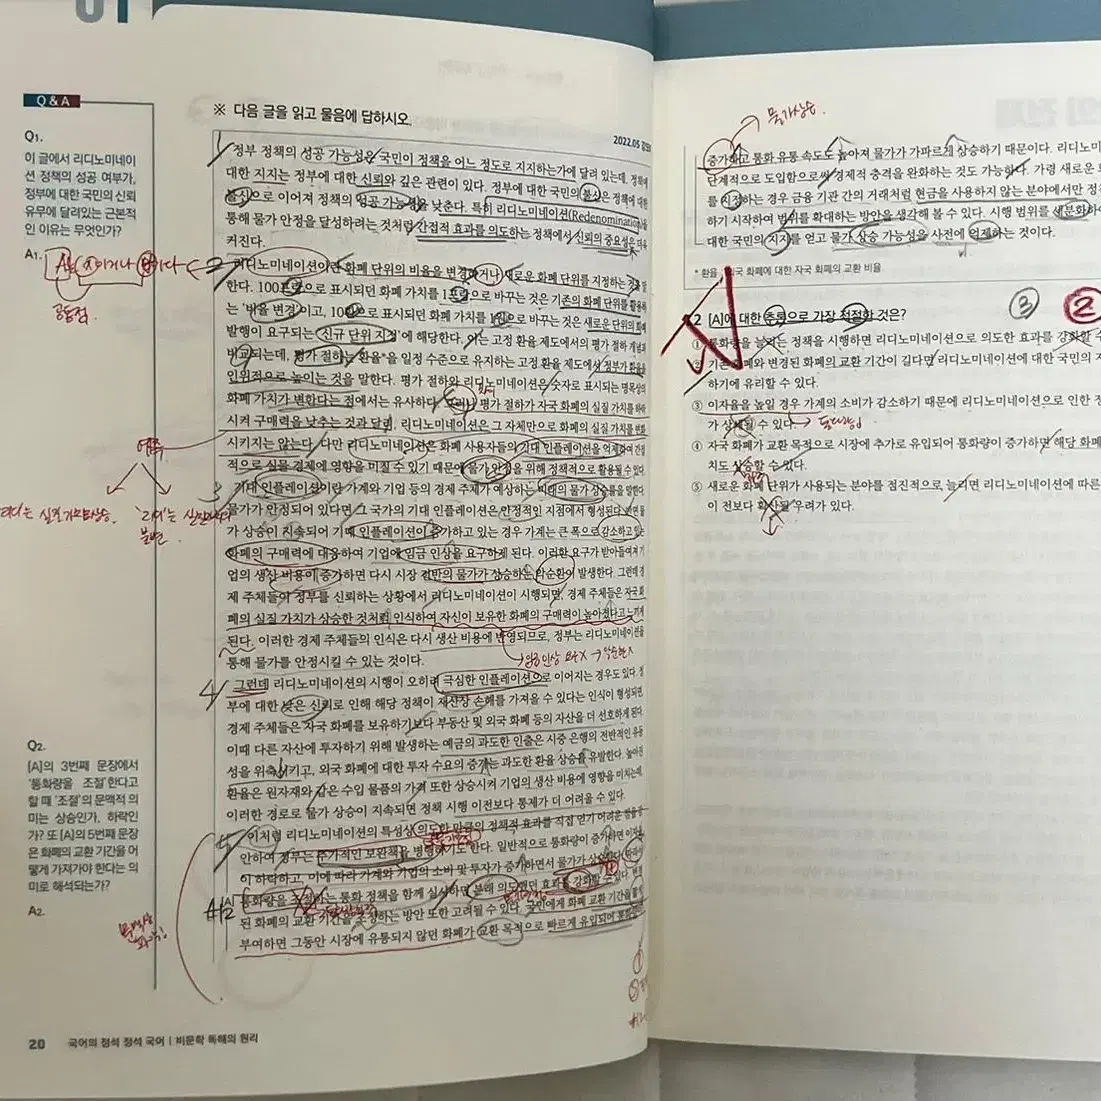 01
Q & A
Q1.
이 글에서 리디노미네이
션 정책의 성공 여부가,
정부에 대한 국민의 신뢰
유무에 달려있는 근본적
인 이유는 무엇인가?
A1.
공통점.
Q2.
[A]의 3번째 문장에서
'통화량을 조절'한다고
할 때 '조절'의 문맥적 의
미는 상승인가, 하락인
가? 또 [A]의 5번째 문장
은 화폐의 교환 기간을 어
떻게 가져가야 한다는 의
미로 해석되는가?
A2.
※ 다음 글을 읽고 물음에 답하시오.
2022.05
정부 정책의 성공 가능성은 국민이 정책을 어느 정도로 지지하는가에 달려 있는데, 정책에
대한 지지는 정부에 대한 신뢰와 깊은 관련이 있다. 정부에 대한 국민의 불신은 정책에 대한
불신으로 이어져 정책의 성공 가능성을 낮춘다. 특히 리디노미네이션(Redenomination)을
통해 물가 안정을 달성하려는 것처럼 간접적 효과를 의도하는 정책에서 신뢰의 중요성은 더욱
커진다.
리디노미네이션이란 화폐 단위의 비율을 변경하거나 새로운 화폐 단위를 지정하는 것을
한다. 100 으로 표시되던 화폐 가치를 1 으로 바꾸는 것은 기존의 화폐 단위를 활용하
는 '비율 변경'이고, 10 으로 표시되던 화폐 가치를 1 으로 바꾸는 것은 새로운 단위의 화폐
발행이 요구되는 '신규 단위 지정'에 해당한다. 이는 고정 환율 제도에서의 평가 절하 개념과
비교되는데, 평가 절하는 환율*을 일정 수준으로 유지하는 고정 환율 제도에서 정부가 환율을
인위적으로 높이는 것을 말한다. 평가 절하와 리디노미네이션은 숫자로 표시되는 명목상의
화폐 가치가 변한다는 점에서는 유사하다. 그러나 평가 절하가 자국 화폐의 실질 가치를 하락
시켜 구매력을 낮추는 것과 달리, 리디노미네이션은 그 자체만으로 화폐의 실질 가치를 변화
시키지는 않는다. 다만 리디노미네이션은 화폐 사용자들의 기대 인플레이션을 억제하여 간접
적으로 실물 경제에 영향을 미칠 수 있기 때문에 물가 안정을 위해 정책적으로 활용될 수 있다.
기대 인플레이션이란 가계와 기업 등의 경제 주체가 예상하는 미래의 물가 상승률을 말한다.
물가가 안정되어 있다면 그 국가의 기대 인플레이션은 안정적인 지점에서 형성된다. 반면 물
가 상승이 지속되어 기대 인플레이션이 증가하고 있는 경우 가계는 큰 폭으로 감소하고 있는
화폐의 구매력에 대응하여 기업에 임금 인상을 요구하게 된다. 이러한 요구가 받아들여져 기
업의 생산 비용이 증가하면 다시 시장 전반의 물가가 상승하는 악순환이 발생한다. 그런데 경
제 주체들이 정부를 신뢰하는 상황에서 리디노미네이션이 시행되면, 경제 주체들은 자국 화
폐의 실질 가치가 상승한 것처럼 인식하여 자신이 보유한 화폐의 구매력이 높아졌다고 느끼게
된다. 이러한 경제 주체들의 인식은 다시 생산 비용에 반영되므로, 정부는 리디노미네이션을
통해 물가를 안정시킬 수 있는 것이다.
그런데 리디노미네이션의 시행이 오히려 극심한 인플레이션으로 이어지는 경우도 있다. 정
부에 대한 낮은 신뢰로 인해 해당 정책이 재산상 손해를 가져올 수 있다는 인식이 형성되면,
경제 주체들은 자국 화폐를 보유하기보다 부동산 및 외국 화폐 등의 자산을 더 선호하게 된다.
이때 다른 자산에 투자하기 위해 발생하는 예금의 과도한 인출은 시중 은행의 전반적인 유동
성을 위축시키고, 외국 화폐에 대한 투자 수요의 증가는 과도한 환율 상승을 유발한다. 높아진
환율은 원자재와 같은 수입 물품의 가격 또한 상승시켜 기업의 생산 비용에 영향을 미치는데,
이러한 경로로 물가 상승이 지속되면 정책 시행 이전보다 통제가 더 어려울 수 있다.
이처럼 리디노미네이션의 특성상 의도한 만큼의 정책적 효과를 직접 얻기 어려운 점을 감
안하여 정부는 추가적인 보완책을 병행하기도 한다. 일반적으로 통화량이 증가하면 이자율
이 하락하고, 이에 따라 가계와 기업의 소비 및 투자가 증가하면서 물가가 상승한다. 따라서
[A] 통화량을 조절하는 통화 정책을 함께 실시하면 본래 의도했던 효과를 강화할 수 있다. 변경
된 화폐의 교환 기간을 조정하는 방안 또한 고려될 수 있다. 국민에게 화폐 교환 기간을 짧게
부여하면 그동안 시장에 유통되지 않던 화폐가 교환 목적으로 빠르게 유입되어 통화량이
20 국어의 정석 정석 국어 | 비문학 독해의 원리
물가상승.
증가하고 통화 유통 속도도 높아져 물가가 가파르게 상승하기 때문이다. 리디노미
단계적으로 도입함으로써 경제적 충격을 완화하는 것도 가능하다. 가령 새로운 화
를 지정하는 경우 금융 기관 간의 거래처럼 현금을 사용하지 않는 분야에서만 정책
하기 시작하여 범위를 확대하는 방안을 생각해 볼 수 있다. 시행 범위를 세분화하
대한 국민의 지지를 얻고 물가 상승 가능성을 사전에 억제하는 것이다.
* 환율 : 외국 화폐에 대한 자국 화폐의 교환 비율
③ ②
2 [A]에 대한 추론으로 가장 적절한 것은?
① 통화량을 늘리는 정책을 시행하면 리디노미네이션으로 의도한 효과를 강화할 수
② 기존 화폐와 변경된 화폐의 교환 기간이 길다면 리디노미네이션에 대한 국민의 지
하기에 유리할 수 있다.
③ 이자율을 높일 경우 가계의 소비가 감소하기 때문에 리디노미네이션으로 인한 정
가 상쇄될 수 있다.
④ 자국 화폐가 교환 목적으로 시장에 추가로 유입되어 통화량이 증가하면 해당 화폐
치도 상승할 수 있다.
⑤ 새로운 화폐 단위가 사용되는 분야를 점진적으로 늘리면 리디노미네이션에 따른
이 전보다 확산될 우려가 있다.